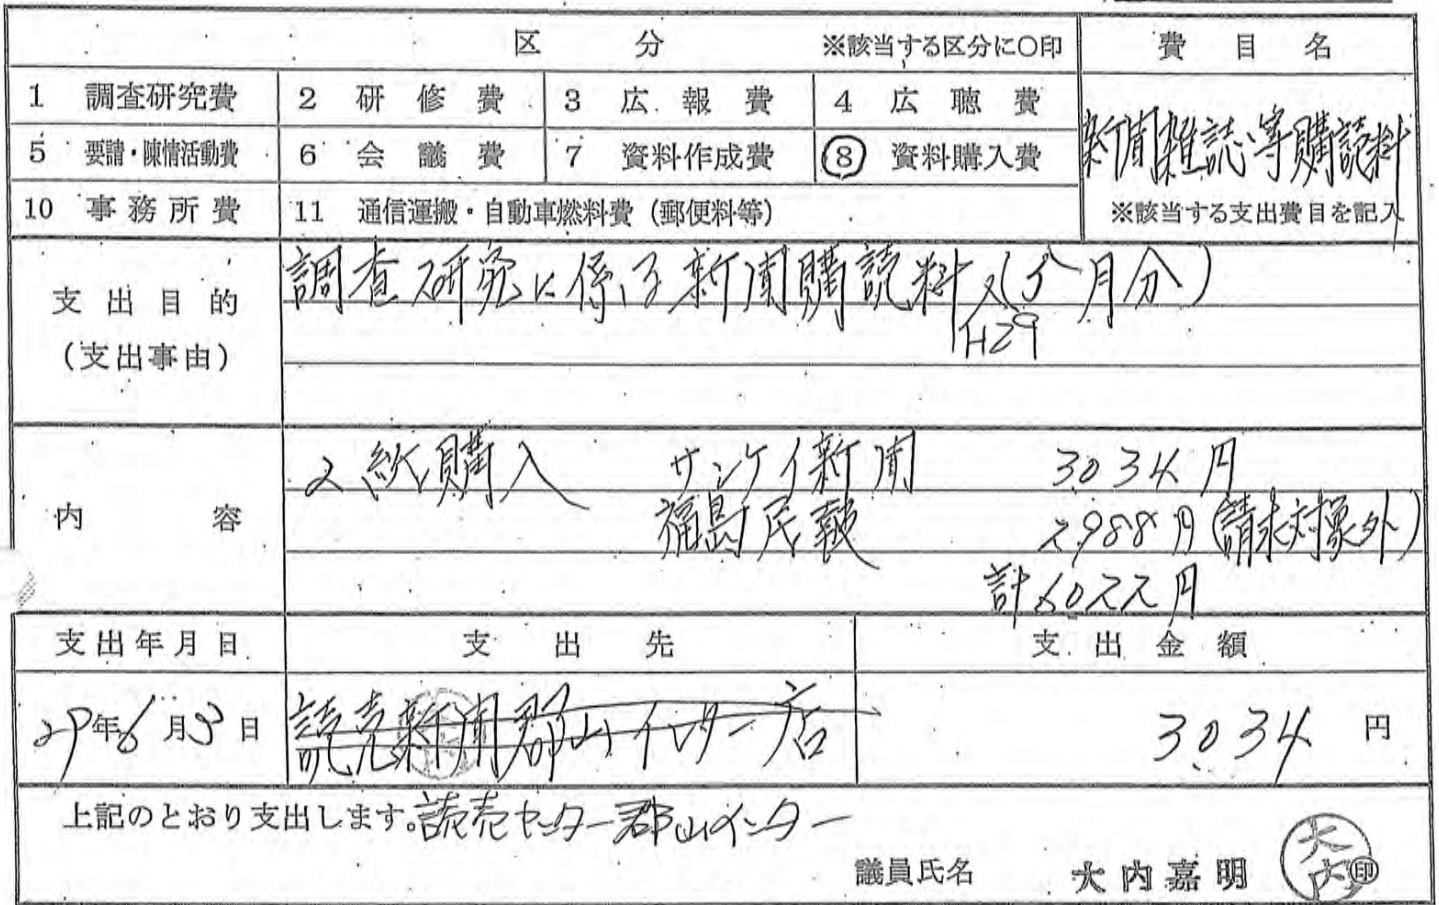 区 分 ※該当する区分に○印 費 目 名
1 調査研究費 2 研 修 費 3 広 報 費 4 広 聴 費
新聞雑誌等購読料
5 要請・陳情活動費 6 会 議 費 7 資料作成費 8 資料購入費
10 事務所費 11 通信運搬・自動車燃料費(郵便料等) ※該当する支出費目を記入
支出目的
(支出事由)
調査研究に係る新聞購読料
月分)
H29
内 容
2紙購入 サンケイ新聞 3034円
福島民報 2988円(請求対象外)
計6022円
支出年月日 支 出 先 支 出 金 額
29年6月3日 読売新聞郡山インター店 3034 円
上記のとおり支出します。読売センター郡山インター
議員氏名 大内嘉明 大内 印